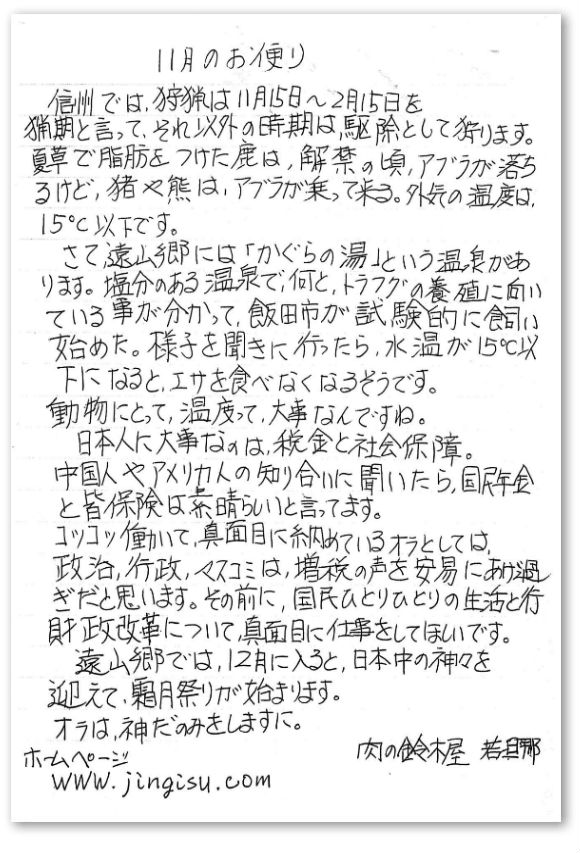 11月のお便り
信州では、狩猟は11月15日～2月15日を
猟期と言って、それ以外の時期は駆除として狩ります。
夏草で脂肪をつけた鹿は、解禁の頃、アブラが落ち
るけど、猪や熊は、アブラが乗って来る。外気の温度は、
15℃以下です。
さて遠山郷には「かぐらの湯」という温泉があ
ります。塩分のある温泉で、何と、トラフグの養殖に向い
ている事が分かって、飯田市が試験的に飼い
始めた。様子を聞きに行ったら、水温が15℃以
下になると、エサを食べなくなるそうです。
動物にとって、温度って、大事なんですね。
日本人に大事なのは、税金と社会保障。
中国人やアメリカ人の知り合いに聞いたら、国民年金
と皆保険は素晴らしいと言ってます。
コツコツ働いて、真面目に納めているオラとしては、
政治、行政、マスコミは、増税の声を安易にあげ過
ぎだと思います。その前に、国民ひとりひとりの生活と行
財政改革について、真面目に仕事をしてほしいです。
遠山郷では、12月に入ると、日本中の神々を
迎えて、霜月祭りが始まります。
オラは、神だのみをしますに。
肉の鈴木屋 若旦那
ホームページ
www.jingisu.com